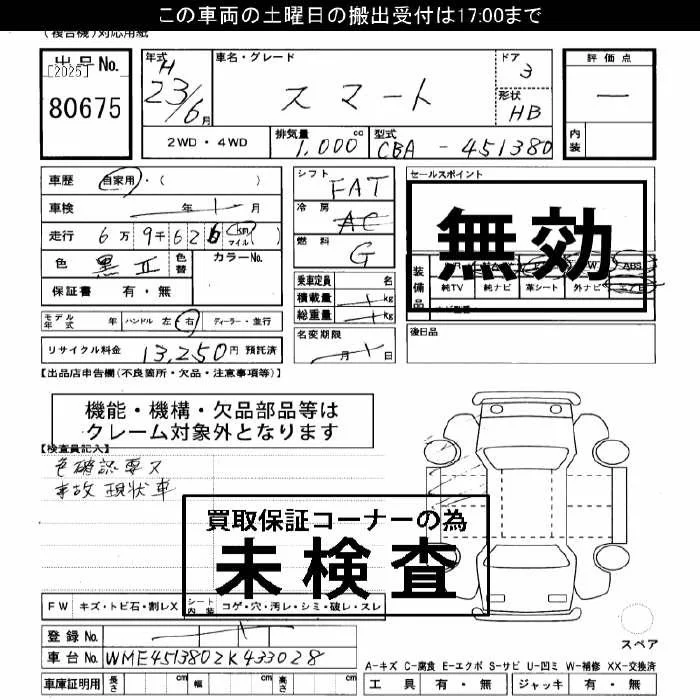 この車両の土曜日の搬出受付は17:00まで
(複合機)対応用紙
出品No. [2025] 80675
年式 H 23/6月
車名・グレード スマート
ドア 3
形状 HB
評価点 —
内装
2WD・4WD
排気量 1,000 cc
型式 CBA - 451380
車歴 自家用・( )
車検 年 月
走行 6万9千626 km マイル ( )
色 黒Ⅱ 色替 カラーNo.
保証書 有・無
モデル年式 年 ハンドル 左 右 ディーラー・並行
リサイクル料金 13,250円 預託済
シフト FAT
冷房 AC
燃料 G
乗車定員 名
積載量 kg
総重量 kg
名変期限 月 日
セールスポイント
無効
装備品 ABS
純TV 純ナビ 革シート 外ナビ
後日品
【出品店申告欄(不良箇所・欠品・注意事項等)】
機能・機構・欠品部品等は
クレーム対象外となります
【検査員記入】
色確認要ス
事故現状車
買取保証コーナーの為
未検査
FW キズ・トビ石・割レX シート内装 コゲ・穴・汚レ・シミ・破レ・スレ
登録No.
車台No. WME4513802K433028
車庫証明用 長さ cm 幅 cm 高さ cm
スペア
A-キズ C-腐食 E-エクボ S-サビ U-凹ミ W-補修 XX-交換済
工具 有・無 ジャッキ 有・無